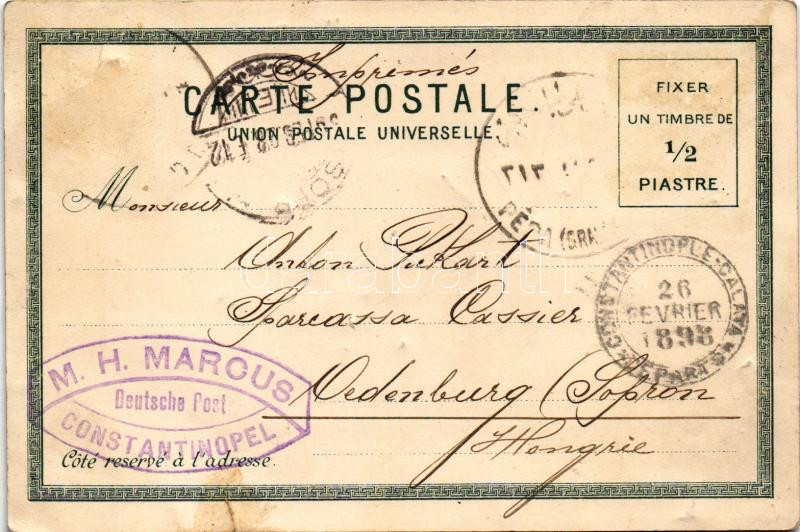 Imprimés
CARTE POSTALE.
UNION POSTALE UNIVERSELLE.
FIXER
UN TIMBRE DE
1/2
PIASTRE.
Monsieur
Anton Pickart
Sparcassa Cassier
Oedenburg (Sopron
Hongrie
CONSTANTINOPLE-GALATA
26
FEVRIER
1898
DEPARTS
PERA
M. H. MARCUS
Deutsche Post
CONSTANTINOPEL
Côté reservé à l'adresse.